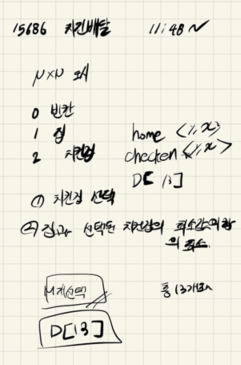 15686 치킨배달 11:48 ✓
N×N 도시
0 빈칸
1 집 home <y,x>
2 치킨집 checken <y,x>
D[13]
① 치킨집 선택
② 집과 선택된 치킨집의 최소값의 합
의 최소.
M개 선택 총 13개
D[13]